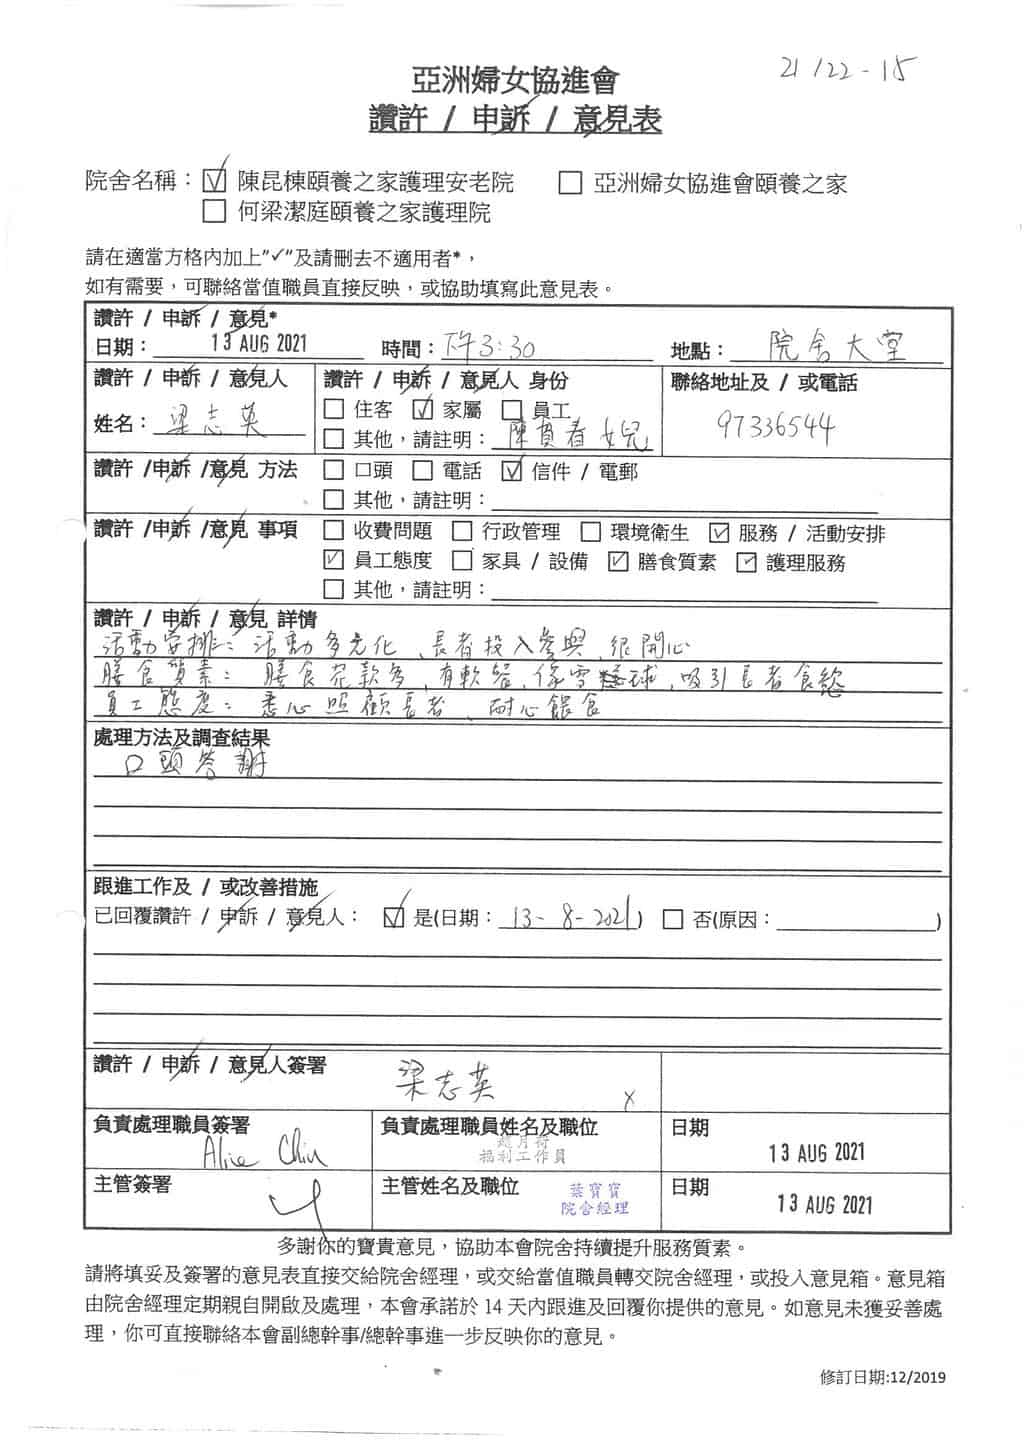 21/22-15
亞洲婦女協進會
讚許 / 申訴 / 意見表
院舍名稱：☑ 陳昆棟頤養之家護理安老院 ☐ 亞洲婦女協進會頤養之家
☐ 何梁潔庭頤養之家護理院
請在適當方格內加上"✓"及請刪去不適用者*，
如有需要，可聯絡當值職員直接反映，或協助填寫此意見表。
讚許 / 申訴 / 意見*
日期： 13 AUG 2021 時間：下午3:30 地點： 院舍大堂
讚許 / 申訴 / 意見人 讚許 / 申訴 / 意見人 身份 聯絡地址及 / 或電話
☐ 住客 ☑ 家屬 ☐ 員工
姓名： 梁志英 ☐ 其他，請註明： 陳貴春女兒 97336544
讚許 /申訴 /意見 方法 ☐ 口頭 ☐ 電話 ☑ 信件 / 電郵
☐ 其他，請註明：
讚許 /申訴 /意見 事項 ☐ 收費問題 ☐ 行政管理 ☐ 環境衛生 ☑ 服務 / 活動安排
☑ 員工態度 ☐ 家具 / 設備 ☑ 膳食質素 ☑ 護理服務
☐ 其他，請註明：
讚許 / 申訴 / 意見 詳情
活動安排：活動多元化、長者投入參與、很開心
膳食質素：膳食花款多，有軟餐，像雪球，吸引長者食慾
員工態度：悉心照顧長者、耐心餵食
處理方法及調查結果
口頭答謝
跟進工作及 / 或改善措施
已回覆讚許 / 申訴 / 意見人： ☑ 是(日期： 13-8-2021 ) ☐ 否(原因： )
讚許 / 申訴 / 意見人簽署 梁志英 x
負責處理職員簽署 負責處理職員姓名及職位 日期
Alice Chiu 趙月符 13 AUG 2021
福利工作員
主管簽署 主管姓名及職位 葉寶寶 日期
院舍經理 13 AUG 2021
多謝你的寶貴意見，協助本會院舍持續提升服務質素。
請將填妥及簽署的意見表直接交給院舍經理，或交給當值職員轉交院舍經理，或投入意見箱。意見箱
由院舍經理定期親自開啟及處理，本會承諾於 14 天內跟進及回覆你提供的意見。如意見未獲妥善處
理，你可直接聯絡本會副總幹事/總幹事進一步反映你的意見。
修訂日期:12/2019